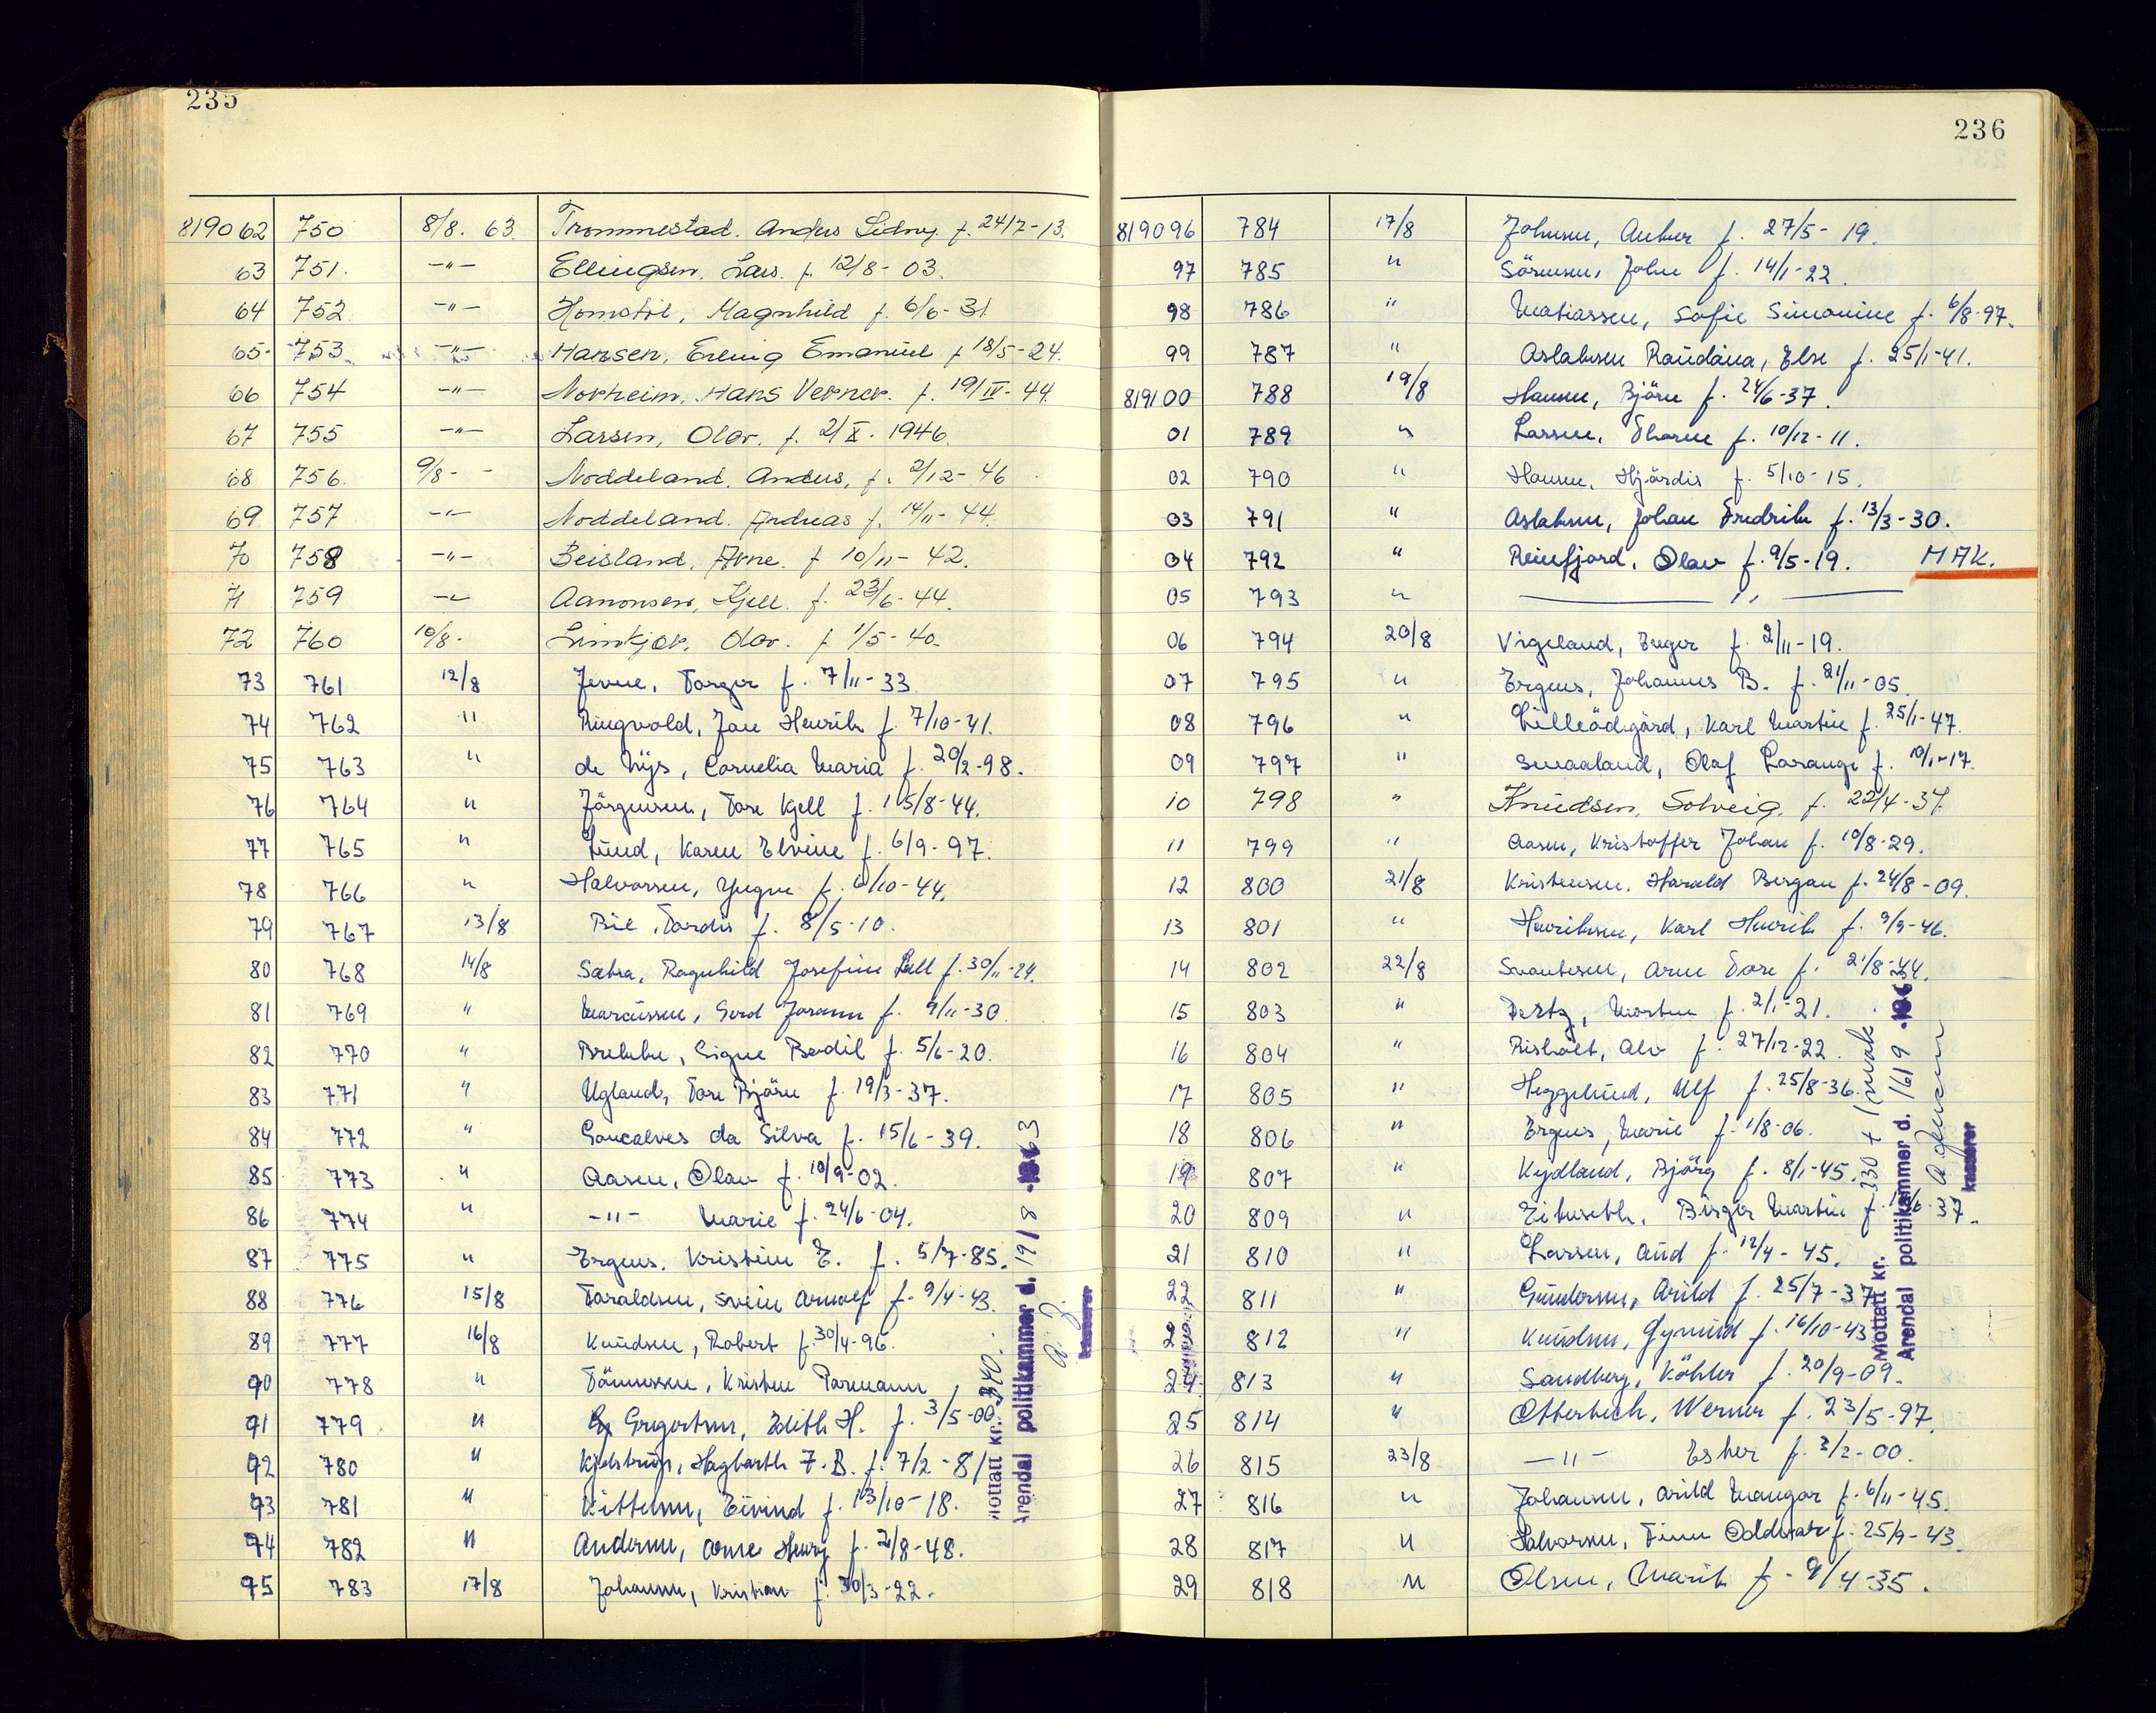 235
819062 750 8/8. 63. Trommestad. Anders Sidny f. 24/7-13.
63 751. -"- Ellingsen. Lars. f. 12/8-03.
64 752. -"- Homstøl, Magnhild f. 6/6-31
65. 753. -"- Hansen, Erling Emanuel f 18/5-24.
66 754 -"- Norheim, Hans Verner. f. 19/IV-44.
67 755 -"- Larsen, Olav. f. 2/X. 1946.
68 756. 9/8- - Noddeland. Anders, f. 2/12-46
69 757 -"- Noddeland. Andreas f. 14/11-44.
70 758 -"- Beisland, Arne. f 10/11-42.
71 759 -"- Aanonsen, Kjell. f. 23/6-44.
72 760 10/8. Limkjær, Olav. f 1/5-40.
73 761 12/8 Jevne, Torger f. 7/11-33
74 762 " Ringvold, Jan Henrik f. 7/10-41.
75 763 " de Nijs, Cornelia Maria f. 20/2-98.
76 764 " Jörgensen, Tore Kjell f. 15/8-44.
77 765 " Lund, Karen Elvine f. 6/9-97.
78 766 " Halvorsen, Yngve f. 6/10-44.
79 767 13/8 Bie, Tordis f. 8/5-10.
80 768 14/8 Sætra, Ragnhild Josefine Lall f. 30/11-24.
81 769 " Marcussen, Gerd Jorunn f. 9/11-30
82 770 " Brekke, Signe Bodil f. 5/6-20.
83 771 " Ugland, Tore Björn f. 19/3-37.
84 772 " Goncalves da Silva f. 15/6-39.
85 773 " Aasen, Olav f. 10/9-02.
86 774 " -"- Marie f. 24/6-04.
87 775 " Ergens. Kristine E. f. 5/7-85.
88 776 15/8 Taraldsen, Svein Arnolf f. 9/4-43.
89 777 16/8 Knudsen, Robert f. 30/4-96.
90 778 " Tönnessen, Kristen Parmann
91 779 " Gregertsen, Edith H. f. 3/5-00
92 780 " Kjelstrup, Hagbarth F. B. f. 7/2-81
93 781 " Kittelsen, Eivind f. 13/10-18.
94 782 " Andersen, Arne Henry f. 2/8-48.
95 783 17/8 Johansen, Kristian f. 30/3-22.
Mottatt kr. 340.
Arendal politikammer d. 19/8 1963
kasserer
236
819096 784 17/8 Johnsen, Anker f. 27/5-19.
97 785 " Sörensen, John f. 14/1-22.
98 786 " Matiassen, Sofie Simonine f. 6/8-97.
99 787 " Aslaksen Raudåna, Else f. 25/1-41.
819100 788 19/8 Hansen, Björn f. 24/6-37.
01 789 " Larsen, Thorm f. 10/12-11.
02 790 " Hansen, Hjördis f. 5/10-15.
03 791 " Aslaksen, Johan Fredrik f. 13/3-30.
04 792 " Reiefjord, Olav f. 9/5-19. MAK.
05 793 " — " —
06 794 20/8 Vigeland, Inger f. 2/11-19.
07 795 " Ergens, Johannes B. f. 21/11-05.
08 796 " Lilleödegård, Karl Martin f. 25/1-47.
09 797 " Smaaland, Olaf f. 10/1-17.
10 798 " Knudsen, Solveig. f. 22/4-37.
11 799 " Aasen, Kristoffer Johan f. 10/8-29.
12 800 21/8 Kristensen. Harald Bergan f. 24/8-09.
13 801 " Henriksen, Karl Henrik f. 9/9-46.
14 802 22/8 Svantesen, Arne Tore f. 21/8-44.
15 803 " Dertz, Morten f. 2/1-21.
16 804 " Risholt, Alv f. 27/12-22
17 805 " Heggelund, Ulf f. 25/8-36.
18 806 " Ergens, Marie f. 1/8-06.
19 807 " Kydland, Björg f. 8/1-45.
20 809 " Eikeseth, Birger Martin f. 37.
21 810 " Larsen, Aud f. 12/4-45.
22 811 " Gundersen, Arild f. 25/7-37
812 " Knudsen, Gymund f. 16/10-43
24 813 " Sandberg, Köhler f. 20/9-09.
25 814 " Otterbech, Werner f. 23/5-97.
26 815 23/8 -"- Esther f. 3/2-00.
27 816 " Johansen, Arild Mangor f. 6/11-45.
28 817 " Halvorsen, Finn Oddvar f. 25/9-43.
29 818 " Olsen, Marit f. 9/4-35.
Mottatt kr. 330 + 1 mak
Arendal politikammer d. 16/9 1963
kasserer